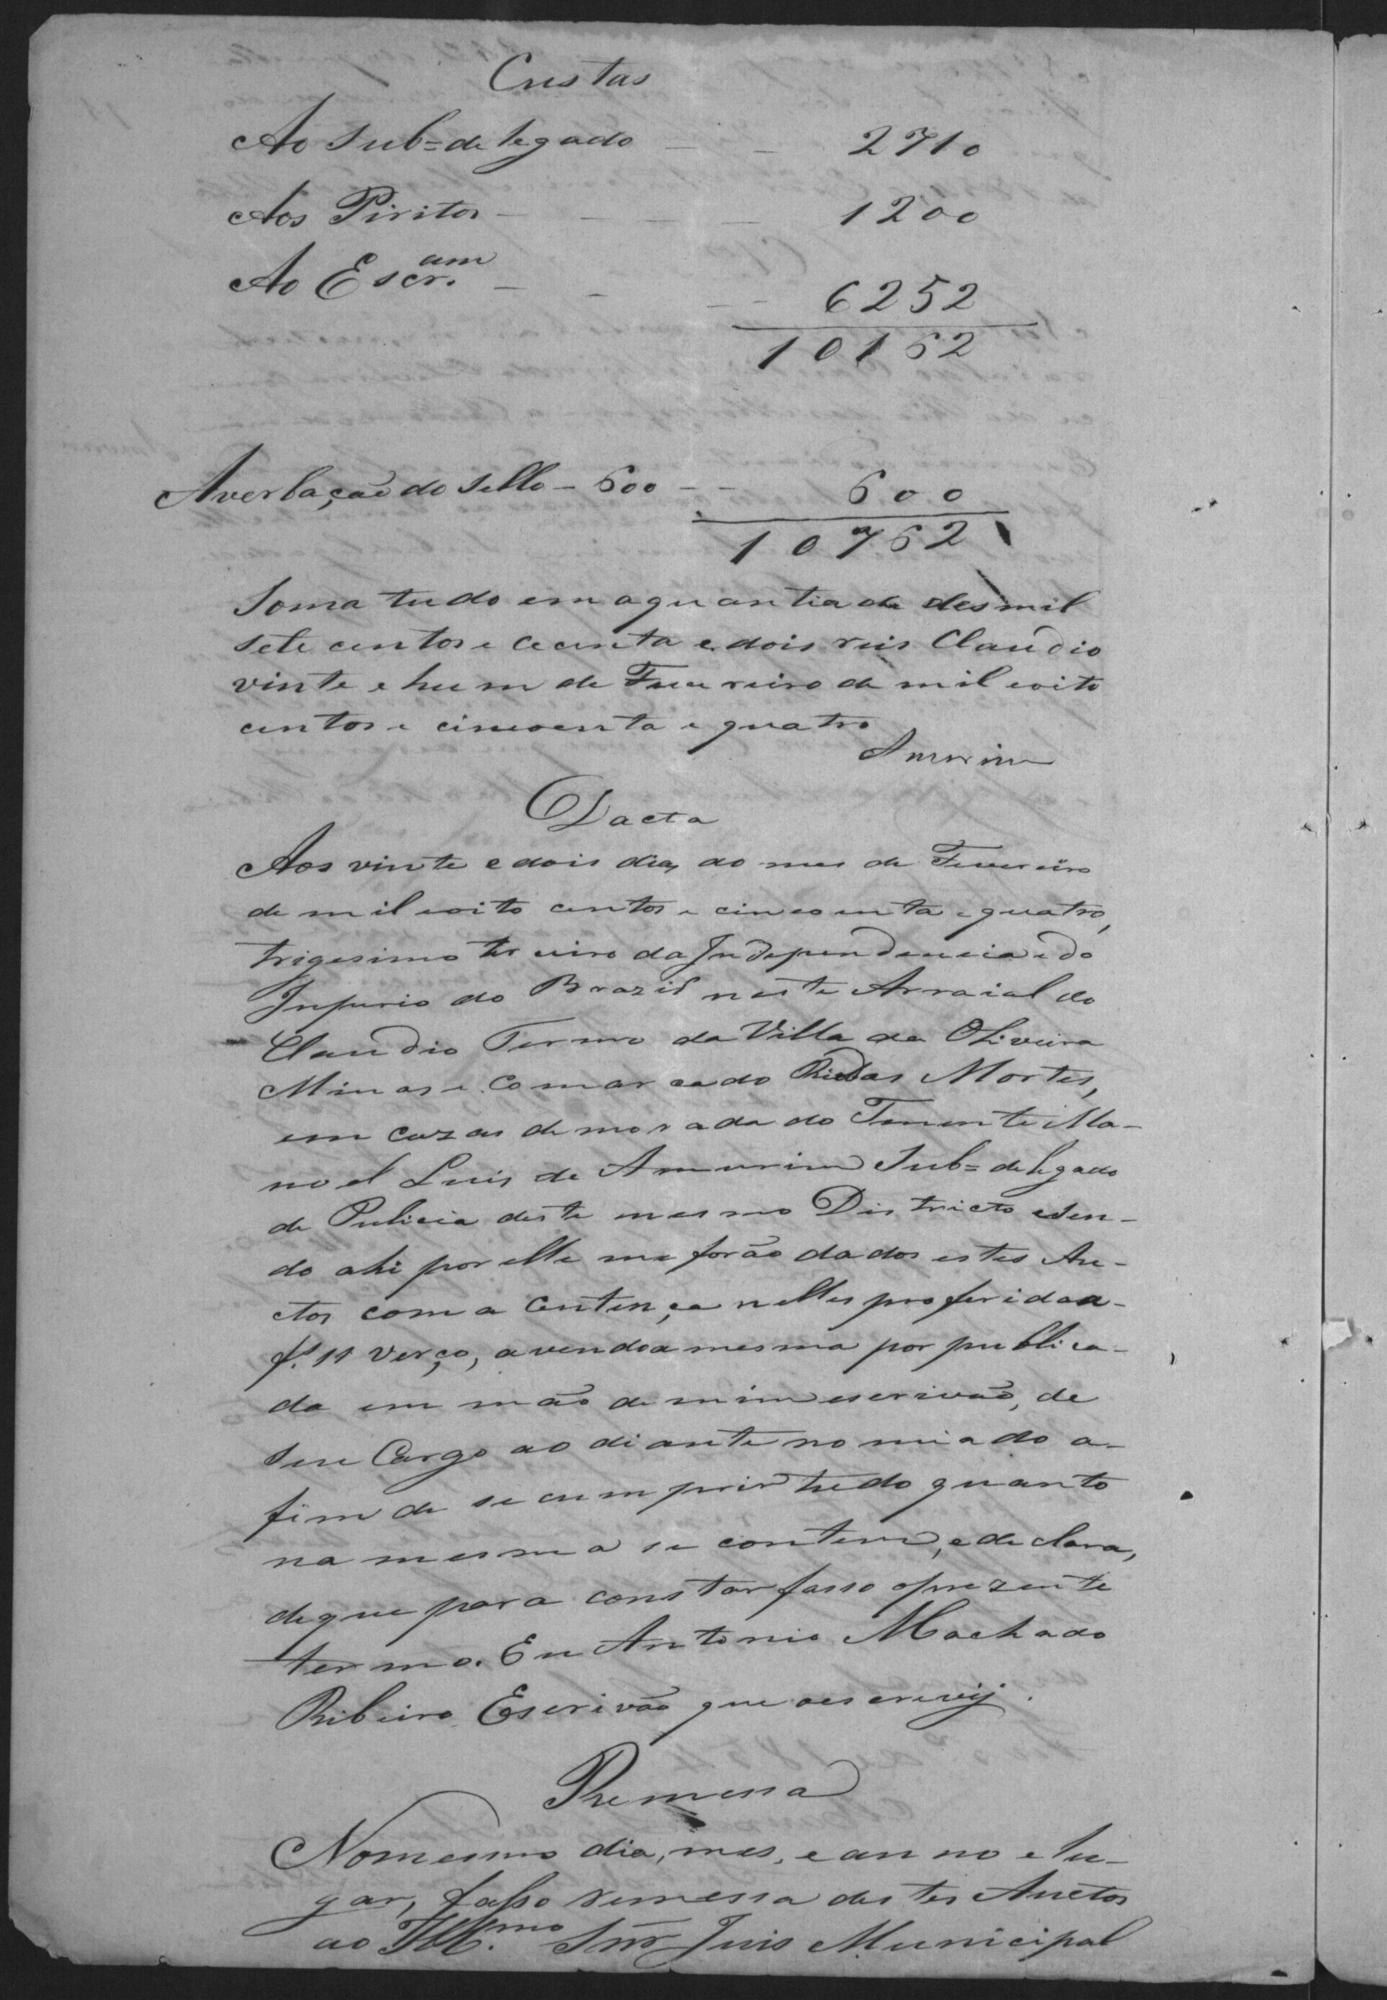 Custas
Ao Sub=delegado - - 2710
Aos Piritos - - - - 1200
Ao Escr.am - - - - 6252
10162
Averbação do Sello - 600 - - 600
10762
Soma tudo em a quantia de desmil
sete centos e cecenta e dois reis Claudio
vinte e hum de Fevereiro de mil eoito
centos e cincoenta e quatro
Amorim
Dacta
Aos vinte e dois dias do mes de Fevereiro
de mil eoito centos e cincoenta e quatro,
trigesimo terceiro da Independencia e do
Imperio do Brazil neste Arraial do
Claudio Termo da Villa de Oliveira
Minas e Comarca do Rio das Mortes,
em cazas de morada do Tenente Ma-
noel Luis de Amorim Sub=delegado
de Pulicia deste mesmo Districto esen-
do ahi por elle me forão dados estes Au-
ctos com a Centença nelles proferida a-
fs. 11 verço, avendo a mesma por publica-
da em mão de mim escrivão, de
seu Cargo ao diante nomiado a-
fim de se cumprir tudo quanto
na mesma se contem, e declara,
de que para constar fasso o prezente
termo. Eu Antonio Machado
Ribeiro Escrivão que o escrevij.
Remessa
No mesmo dia, mes, e anno e lu-
gar, fasso remessa destes Auctos
ao Ill.mo Snr Juis Municipal